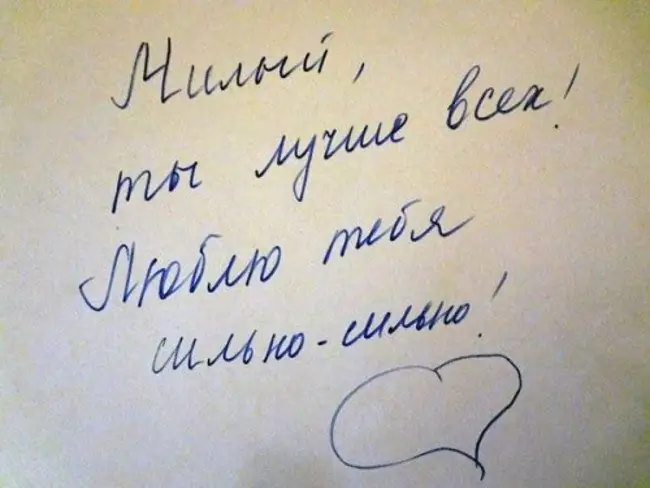 Милый,
ты лучше всех!
Люблю тебя
сильно-сильно!